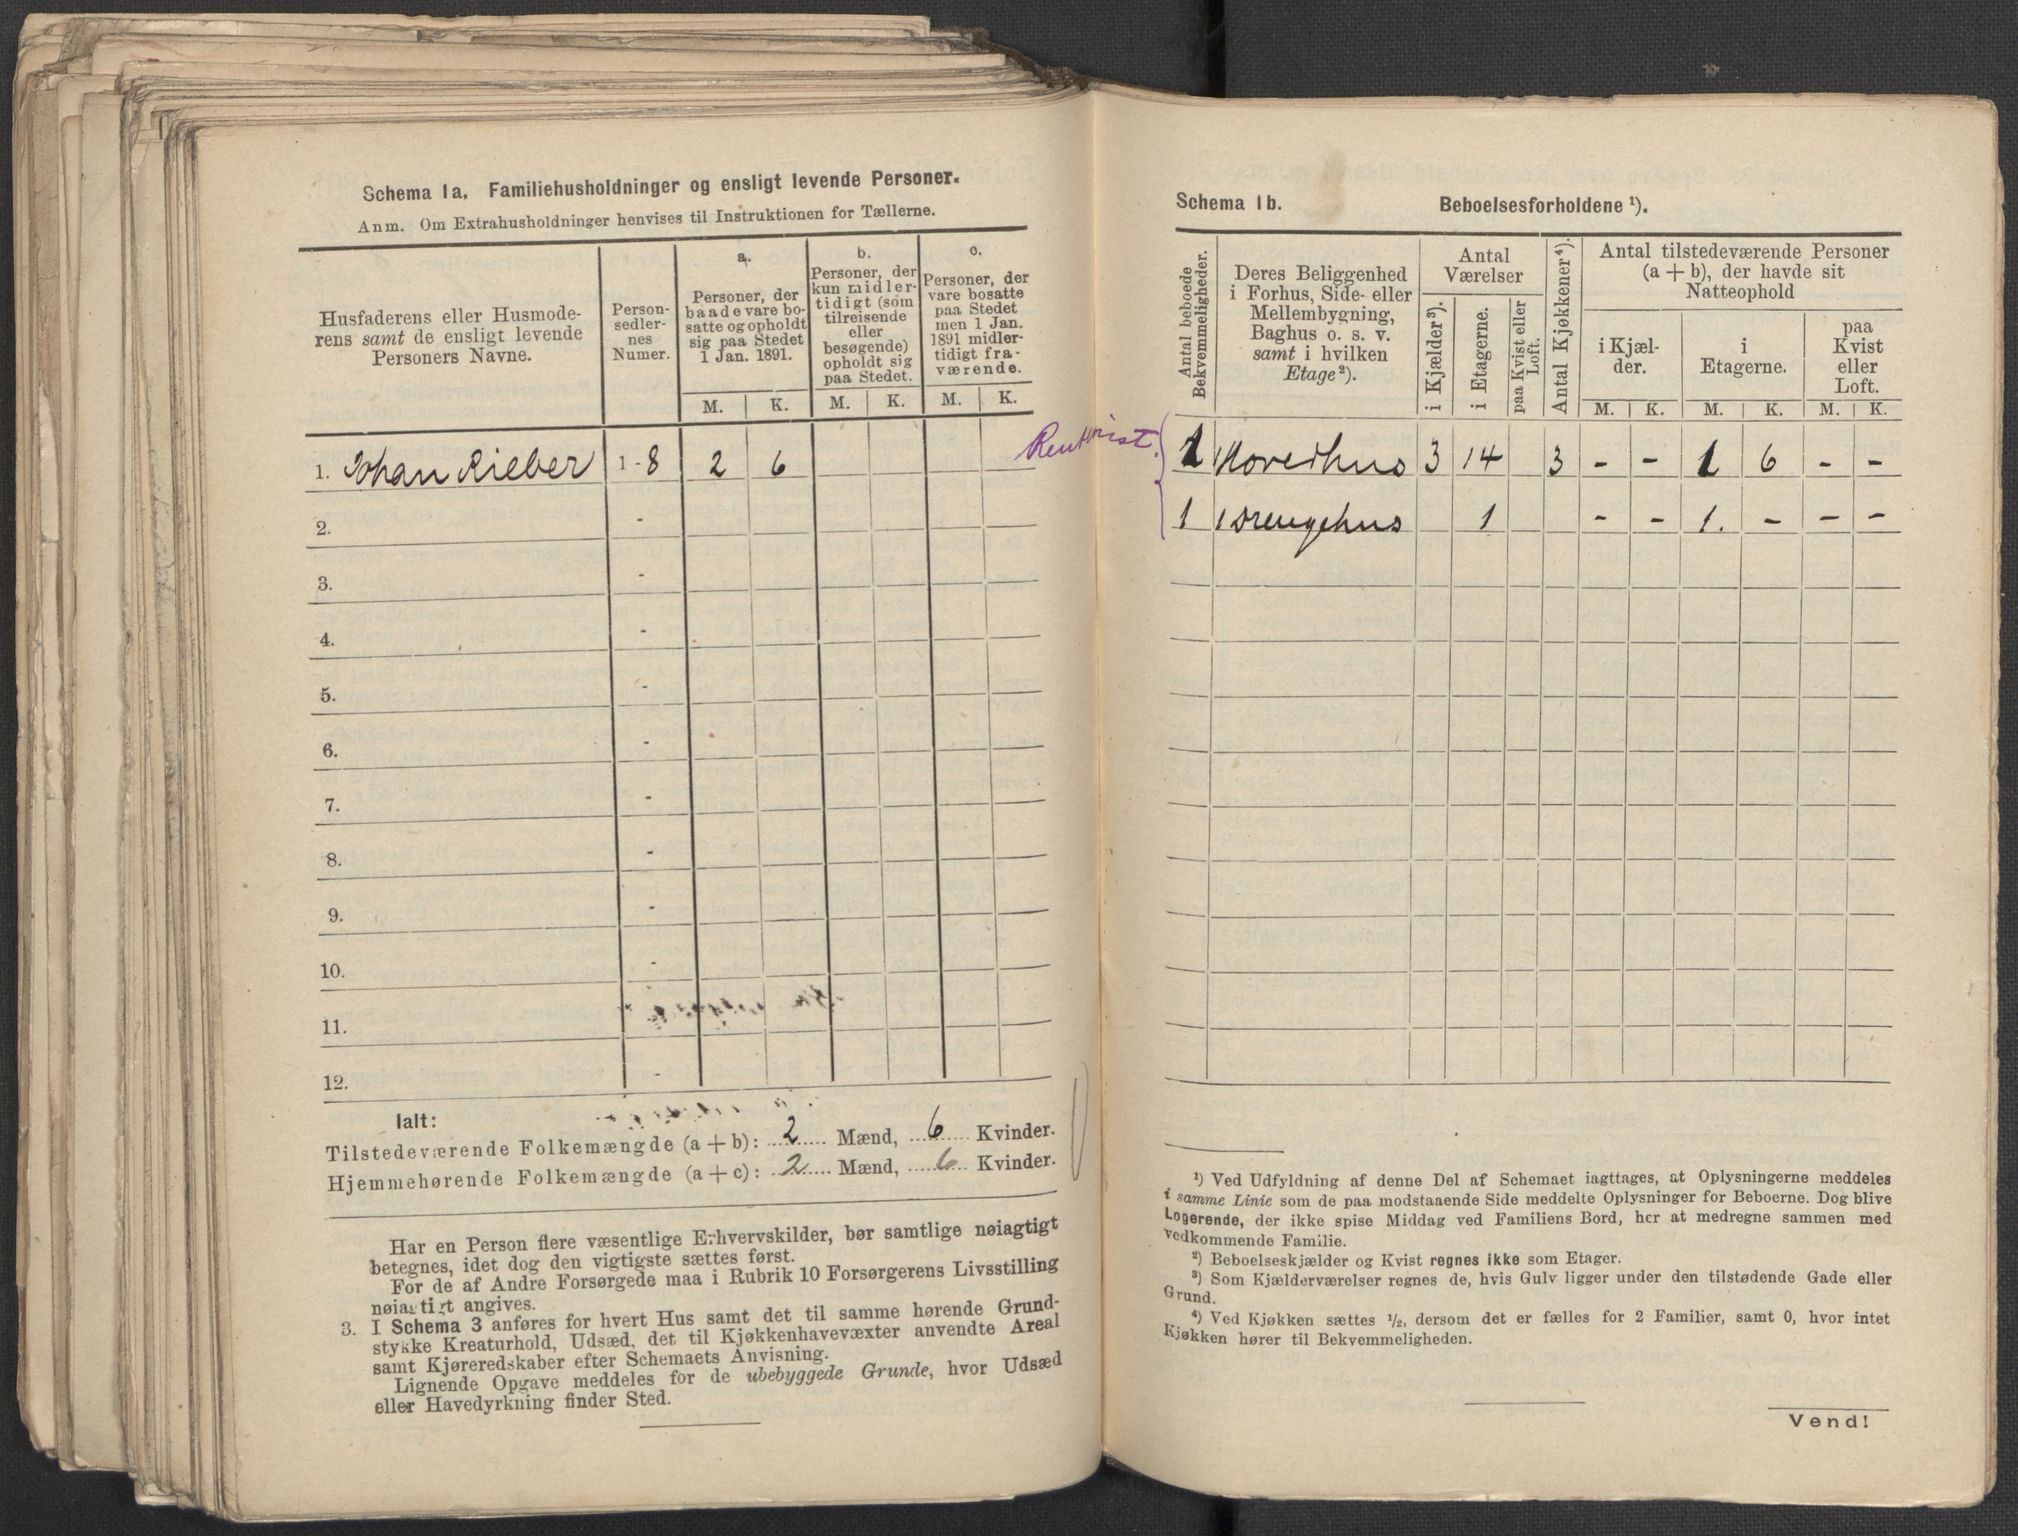 Schema 1 a. Familiehusholdninger og ensligt levende Personer.
Anm. Om Extrahusholdninger henvises til Instruktionen for Tællerne.
Husfaderens eller Husmode-
rens samt de ensligt levende
Personers Navne.
Person-
sedler-
nes
Numer.
a.
Personer, der
baade vare bo-
satte og opholdt
sig paa Stedet
1 Jan. 1891.
M. K.
b.
Personer, der
kun midler-
tidigt (som
tilreisende
eller
besøgende)
opholdt sig
paa Stedet.
M. K.
c.
Personer, der
vare bosatte
paa Stedet
men 1 Jan.
1891 midler-
tidigt fra-
værende.
M. K.
1. Johan Rieber 1 - 8 2 6
2. -
3. -
4. -
5. -
6. -
7. -
8. -
9. -
10. -
11. -
12. -
Ialt:
Tilstedeværende Folkemængde (a + b): 2 Mænd, 6 Kvinder.
Hjemmehørende Folkemængde (a + c): 2 Mænd, 6 Kvinder.
Har en Person flere væsentlige Erhvervskilder, bør samtlige nøiagtigt
betegnes, idet dog den vigtigste sættes først.
For de af Andre Forsørgede maa i Rubrik 10 Forsørgerens Livsstilling
nøiagtigt angives.
3. I Schema 3 anføres for hvert Hus samt det til samme hørende Grund-
stykke Kreaturhold, Udsæd, det til Kjøkkenhavevæxter anvendte Areal
samt Kjøreredskaber efter Schemaets Anvisning.
Lignende Opgave meddeles for de ubebyggede Grunde, hvor Udsæd
eller Havedyrkning finder Sted.
Schema 1 b. Beboelsesforholdene ¹).
Antal beboede
Bekvemmeligheder.
Deres Beliggenhed
i Forhus, Side- eller
Mellembygning,
Baghus o. s. v.
samt i hvilken
Etage²).
Antal
Værelser
i Kjælder³).
i Etagerne.
paa Kvist eller
Loft.
Antal Kjøkkener⁴).
Antal tilstedeværende Personer
(a + b), der havde sit
Natteophold
i Kjæl-
der.
M. K.
i
Etagerne.
M. K.
paa
Kvist
eller
Loft.
M. K.
Rentenist. 1 Hovedhus 3 14 3 - - 1 6 - -
1 Drengehus 1 - - 1. - - -
¹) Ved Udfyldning af denne Del af Schemaet iagttages, at Oplysningerne meddeles
i samme Linie som de paa modstaaende Side meddelte Oplysninger for Beboerne. Dog blive
Logerende, der ikke spise Middag ved Familiens Bord, her at medregne sammen med
vedkommende Familie.
²) Beboelseskjælder og Kvist regnes ikke som Etager.
³) Som Kjælderværelser regnes de, hvis Gulv ligger under den tilstødende Gade eller
Grund.
⁴) Ved Kjøkken sættes ½, dersom det er fælles for 2 Familier, samt 0, hvor intet
Kjøkken hører til Bekvemmeligheden.
Vend!